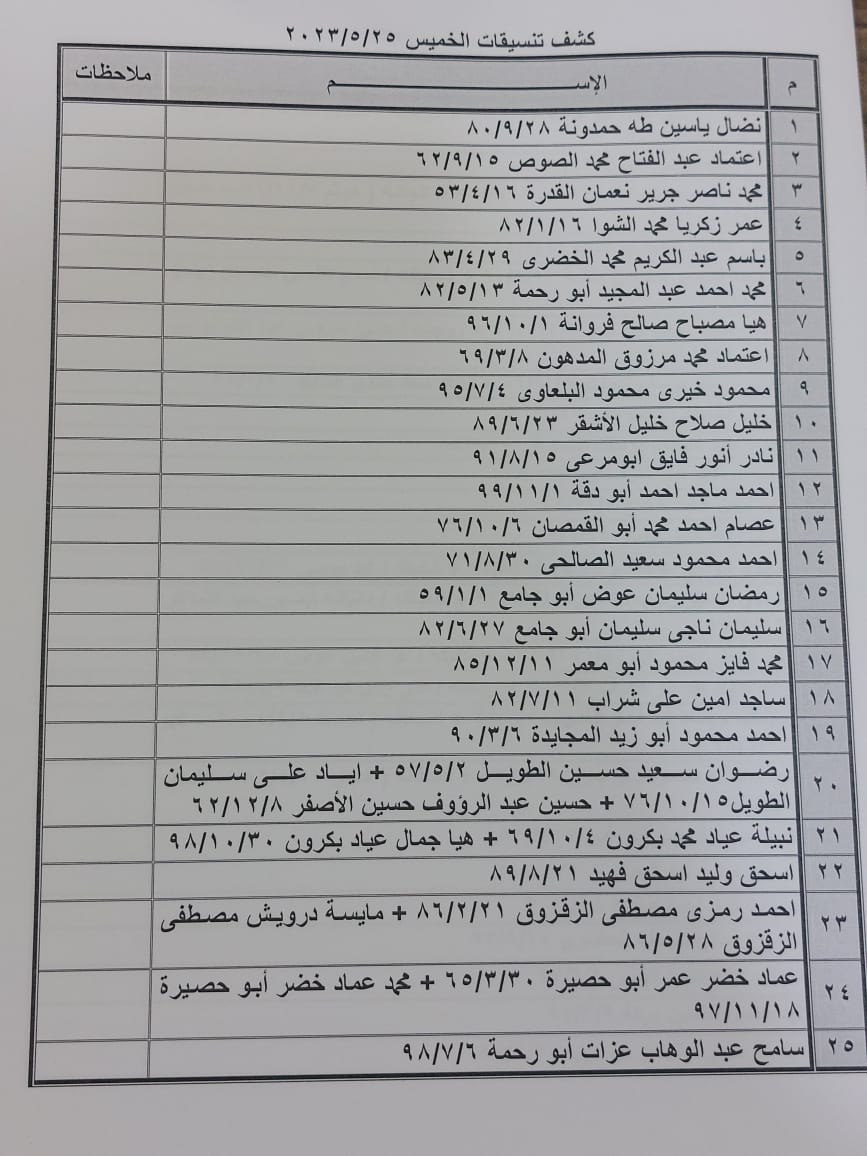 كشف تنسيقات الخميس ٢٠٢٣/٥/٢٥
م الإســـــــم ملاحظات
١ نضال ياسين طه حمدونة ٨٠/٩/٢٨
٢ اعتماد عبد الفتاح محمد الصوص ٦٢/٩/١٥
٣ محمد ناصر جرير نعمان القدرة ٥٣/٤/١٦
٤ عمر زكريا محمد الشوا ٨٢/١/١٦
٥ باسم عبد الكريم محمد الخضرى ٨٣/٤/٢٩
٦ محمد احمد عبد المجيد أبو رحمة ٨٢/٥/١٣
٧ هيا مصباح صالح فروانة ٩٦/١٠/١
٨ اعتماد محمد مرزوق المدهون ٦٩/٣/٨
٩ محمود خيرى محمود البلعاوى ٩٥/٧/٤
١٠ خليل صلاح خليل الأشقر ٨٩/٦/٢٣
١١ نادر أنور فايق ابومرعى ٩١/٨/١٥
١٢ احمد ماجد احمد أبو دقة ٩٩/١١/١
١٣ عصام احمد محمد أبو القمصان ٧٦/١٠/٦
١٤ احمد محمود سعيد الصالحى ٧١/٨/٣٠
١٥ رمضان سليمان عوض أبو جامع ٥٩/١/١
١٦ سليمان ناجى سليمان أبو جامع ٨٢/٦/٢٧
١٧ محمد فايز محمود أبو معمر ٨٥/١٢/١١
١٨ ساجد امين على شراب ٨٢/٧/١١
١٩ احمد محمود أبو زيد المجايدة ٩٠/٣/٦
٢٠ رضوان سعيد حسين الطويل ٥٧/٥/٢ + اياد على سليمان
الطويل٧٦/١٠/١٥ + حسين عبد الرؤوف حسين الأصفر ٦٢/١٢/٨
٢١ نبيلة عياد محمد بكرون ٦٩/١٠/٤ + هيا جمال عياد بكرون ٩٨/١٠/٣٠
٢٢ اسحق وليد اسحق فهيد ٨٩/٨/٢١
٢٣ احمد رمزى مصطفى الزقزوق ٨٦/٢/٢١ + مايسة درويش مصطفى
الزقزوق ٨٦/٥/٢٨
٢٤ عماد خضر عمر أبو حصيرة ٦٥/٣/٣٠ + محمد عماد خضر أبو حصيرة
٩٧/١١/١٨
٢٥ سامح عبد الوهاب عزات أبو رحمة ٩٨/٧/٦